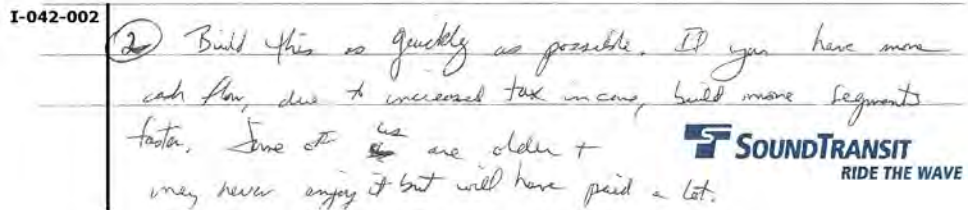 I-042-002
② Build this as quickly as possible. If you have more
cash flow, due to increased tax income, build more segments
faster. Some of us are older +
may never enjoy it but will have paid a lot.
SOUNDTRANSIT
RIDE THE WAVE